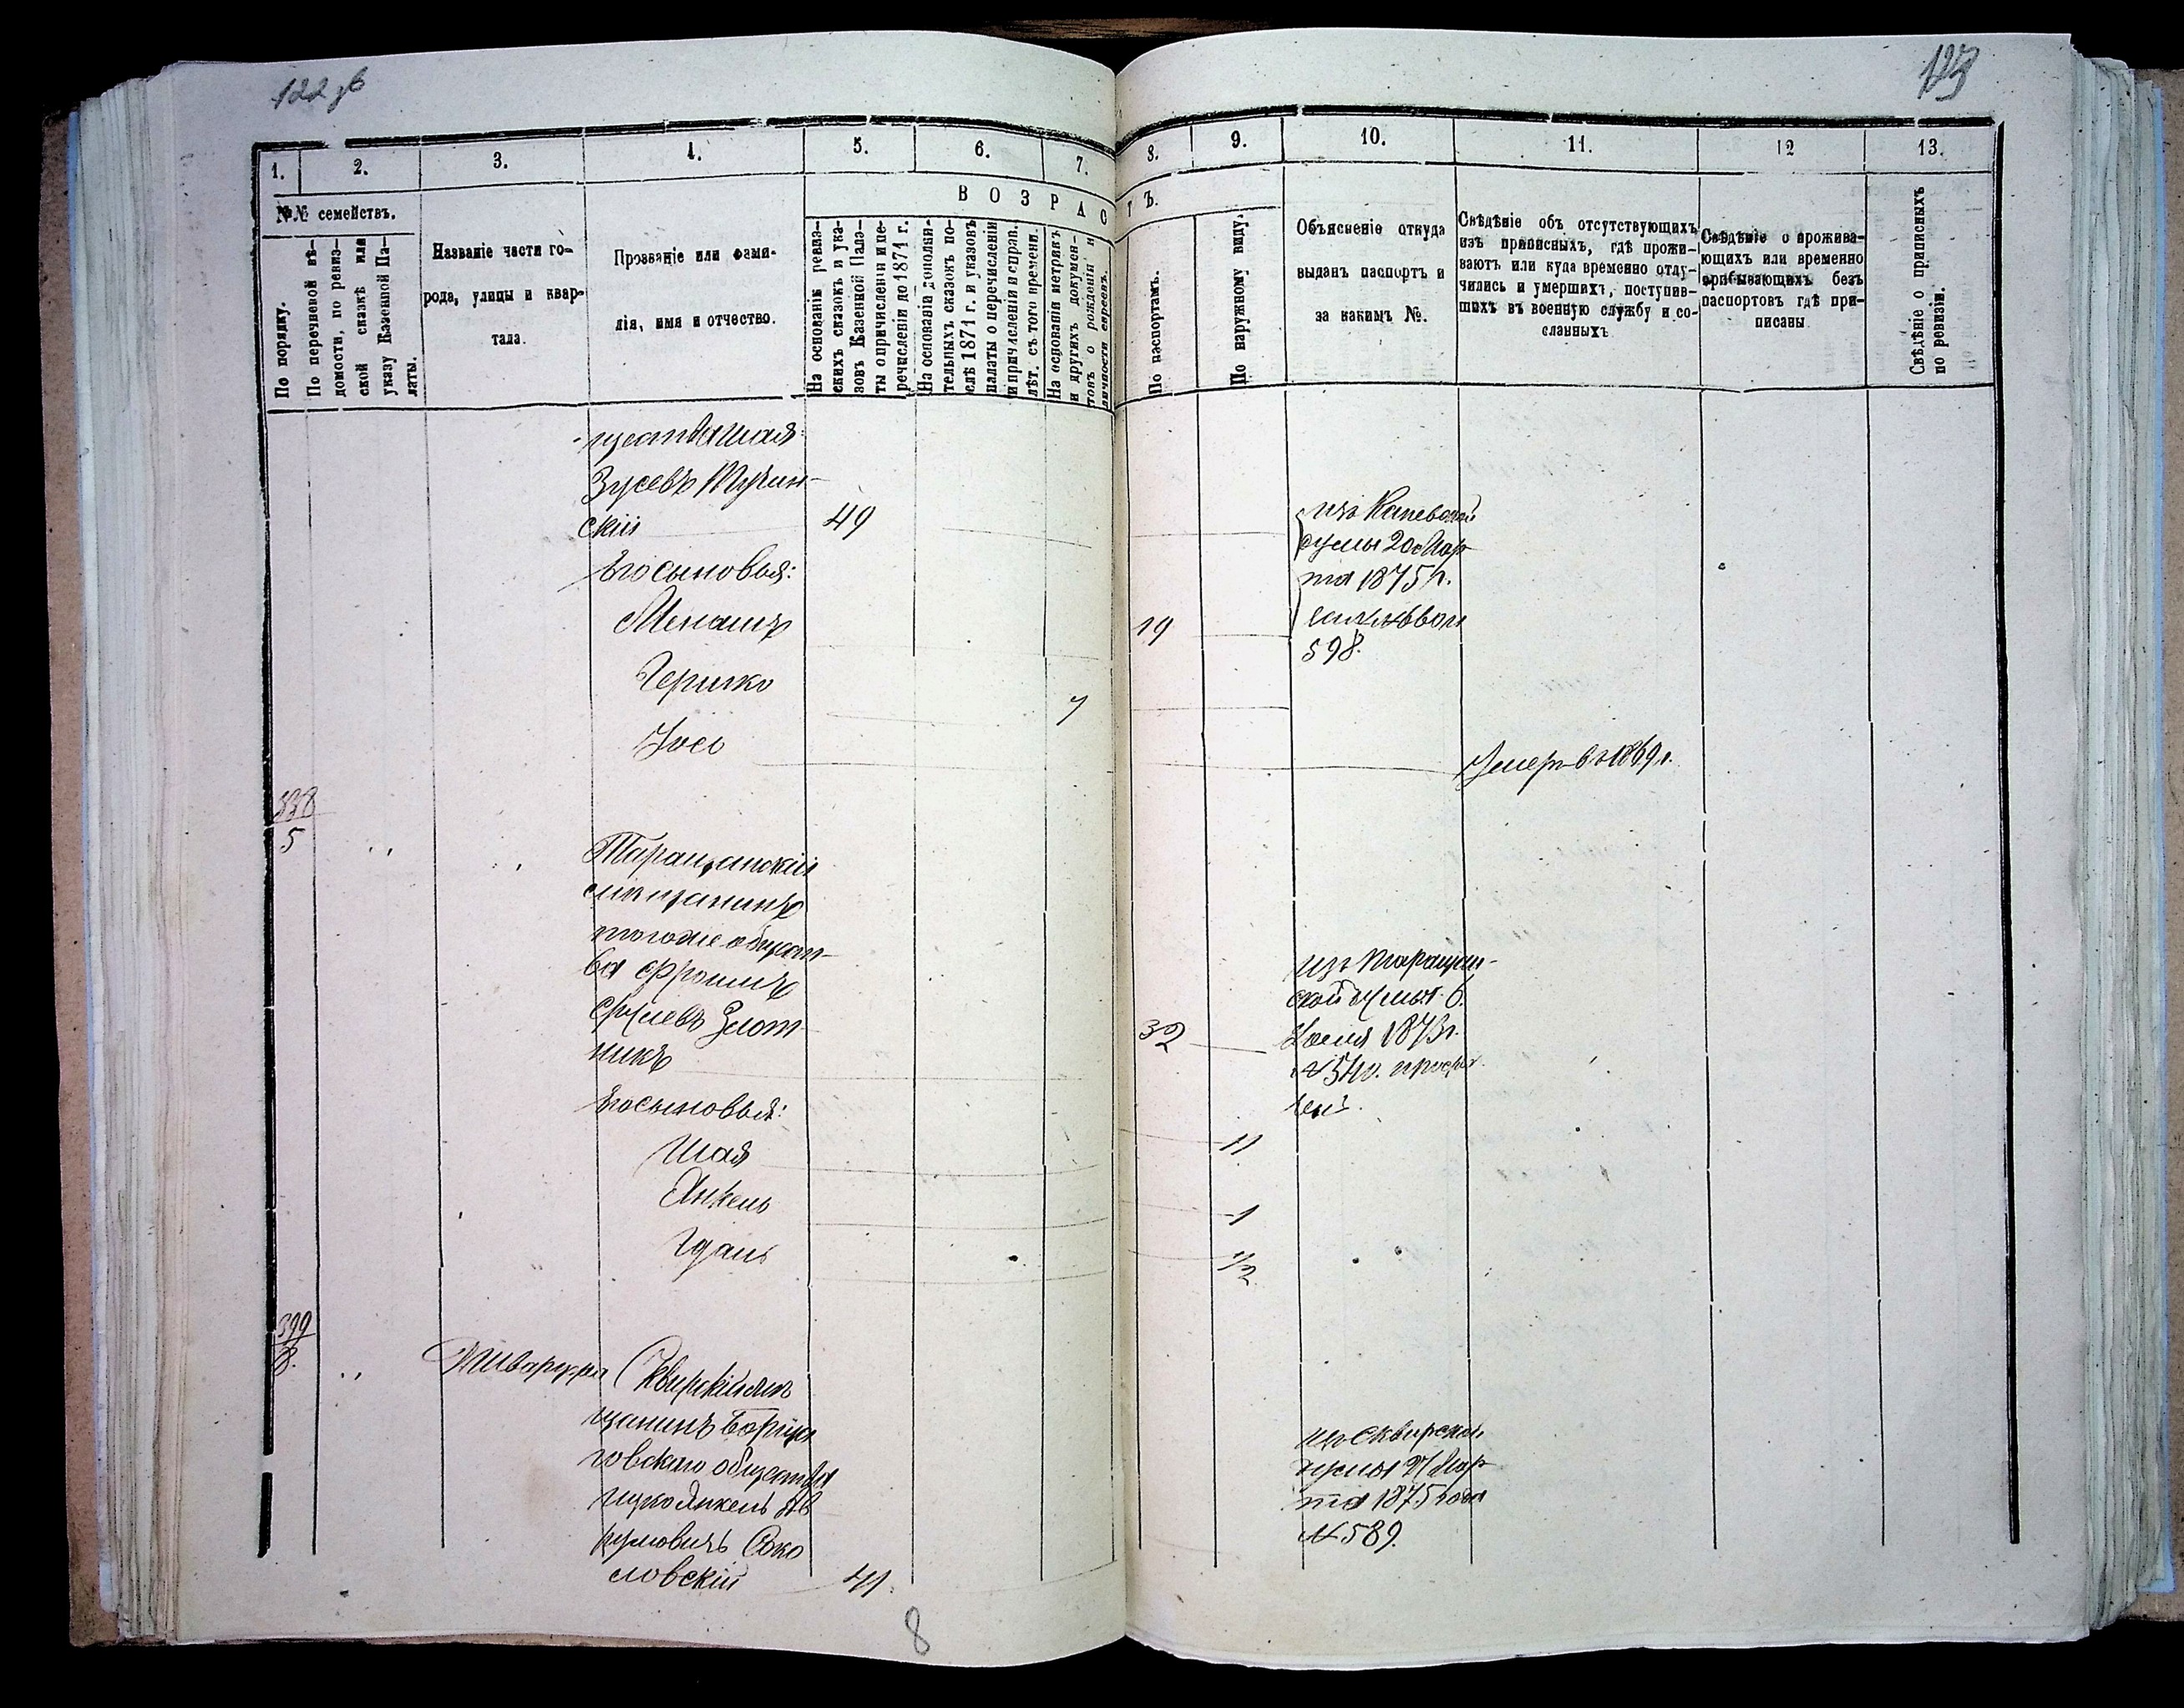 122 об
123
1.
2.
3.
4.
5.
6.
7.
8.
9.
10.
11.
12
13.
№№ семействъ.
По порядку.
По перечневой вѣ-
домости, по ревиз-
ской сказкѣ или
указу Казенной Па-
латы.
Названіе части го-
рода, улицы и квар-
тала.
Прозваніе или фами-
лія, имя и отчество.
ВОЗРАСТЪ.
На основаніи ревиз-
скихъ сказокъ и ука-
зовъ Казенной Пала-
ты о причисленіи и пе-
речисленіи до 1871 г.
На основаніи дополни-
тельныхъ сказокъ по-
слѣ 1871 г. и указовъ
палаты о перечисленіи
и причисленіи и справ.
лѣт. съ того времени.
На основаніи метрикъ
и другихъ докумен-
товъ о рожденіи и
личности евреевъ.
По паспортамъ.
По наружному виду.
Объясненіе откуда
выданъ паспортъ и
за какимъ №.
Свѣдѣніе объ отсутствующихъ
изъ приписныхъ, гдѣ прожи-
ваютъ или куда временно отлу-
чились и умершихъ, поступив-
шихъ въ военную службу и со-
сланныхъ
Свѣдѣніе о прожива-
ющихъ или временно
прибывающихъ безъ
паспортовъ гдѣ при-
писаны
Свѣдѣніе о приписныхъ
по ревизіи.
щества Шая
Зусевъ Тучин-
скій
49
изъ Каневской
думы 20 Мар-
та 1875 г.
598.
Его сыновья:
Менашъ
19
Гершко
7
Іосъ
Умеръ въ 1869 г.
338
5
Таращанскій
мѣщанинъ
того же общест-
ва Фроимъ
Сруlевъ Злот-
никъ
32
изъ Таращан-
ской думы 6
Іюля 1873 г.
Его сыновья:
Шая
11
Янкель
1
Идаль
1/2
399
8.
Сквирскій мѣ-
щанинъ
говскаго общества
Ицко Янкель Ав-
румовичъ Соко-
ловскій
41.
изъ Сквирской
думы 21 Мар-
та 1875 года
№ 589.
8